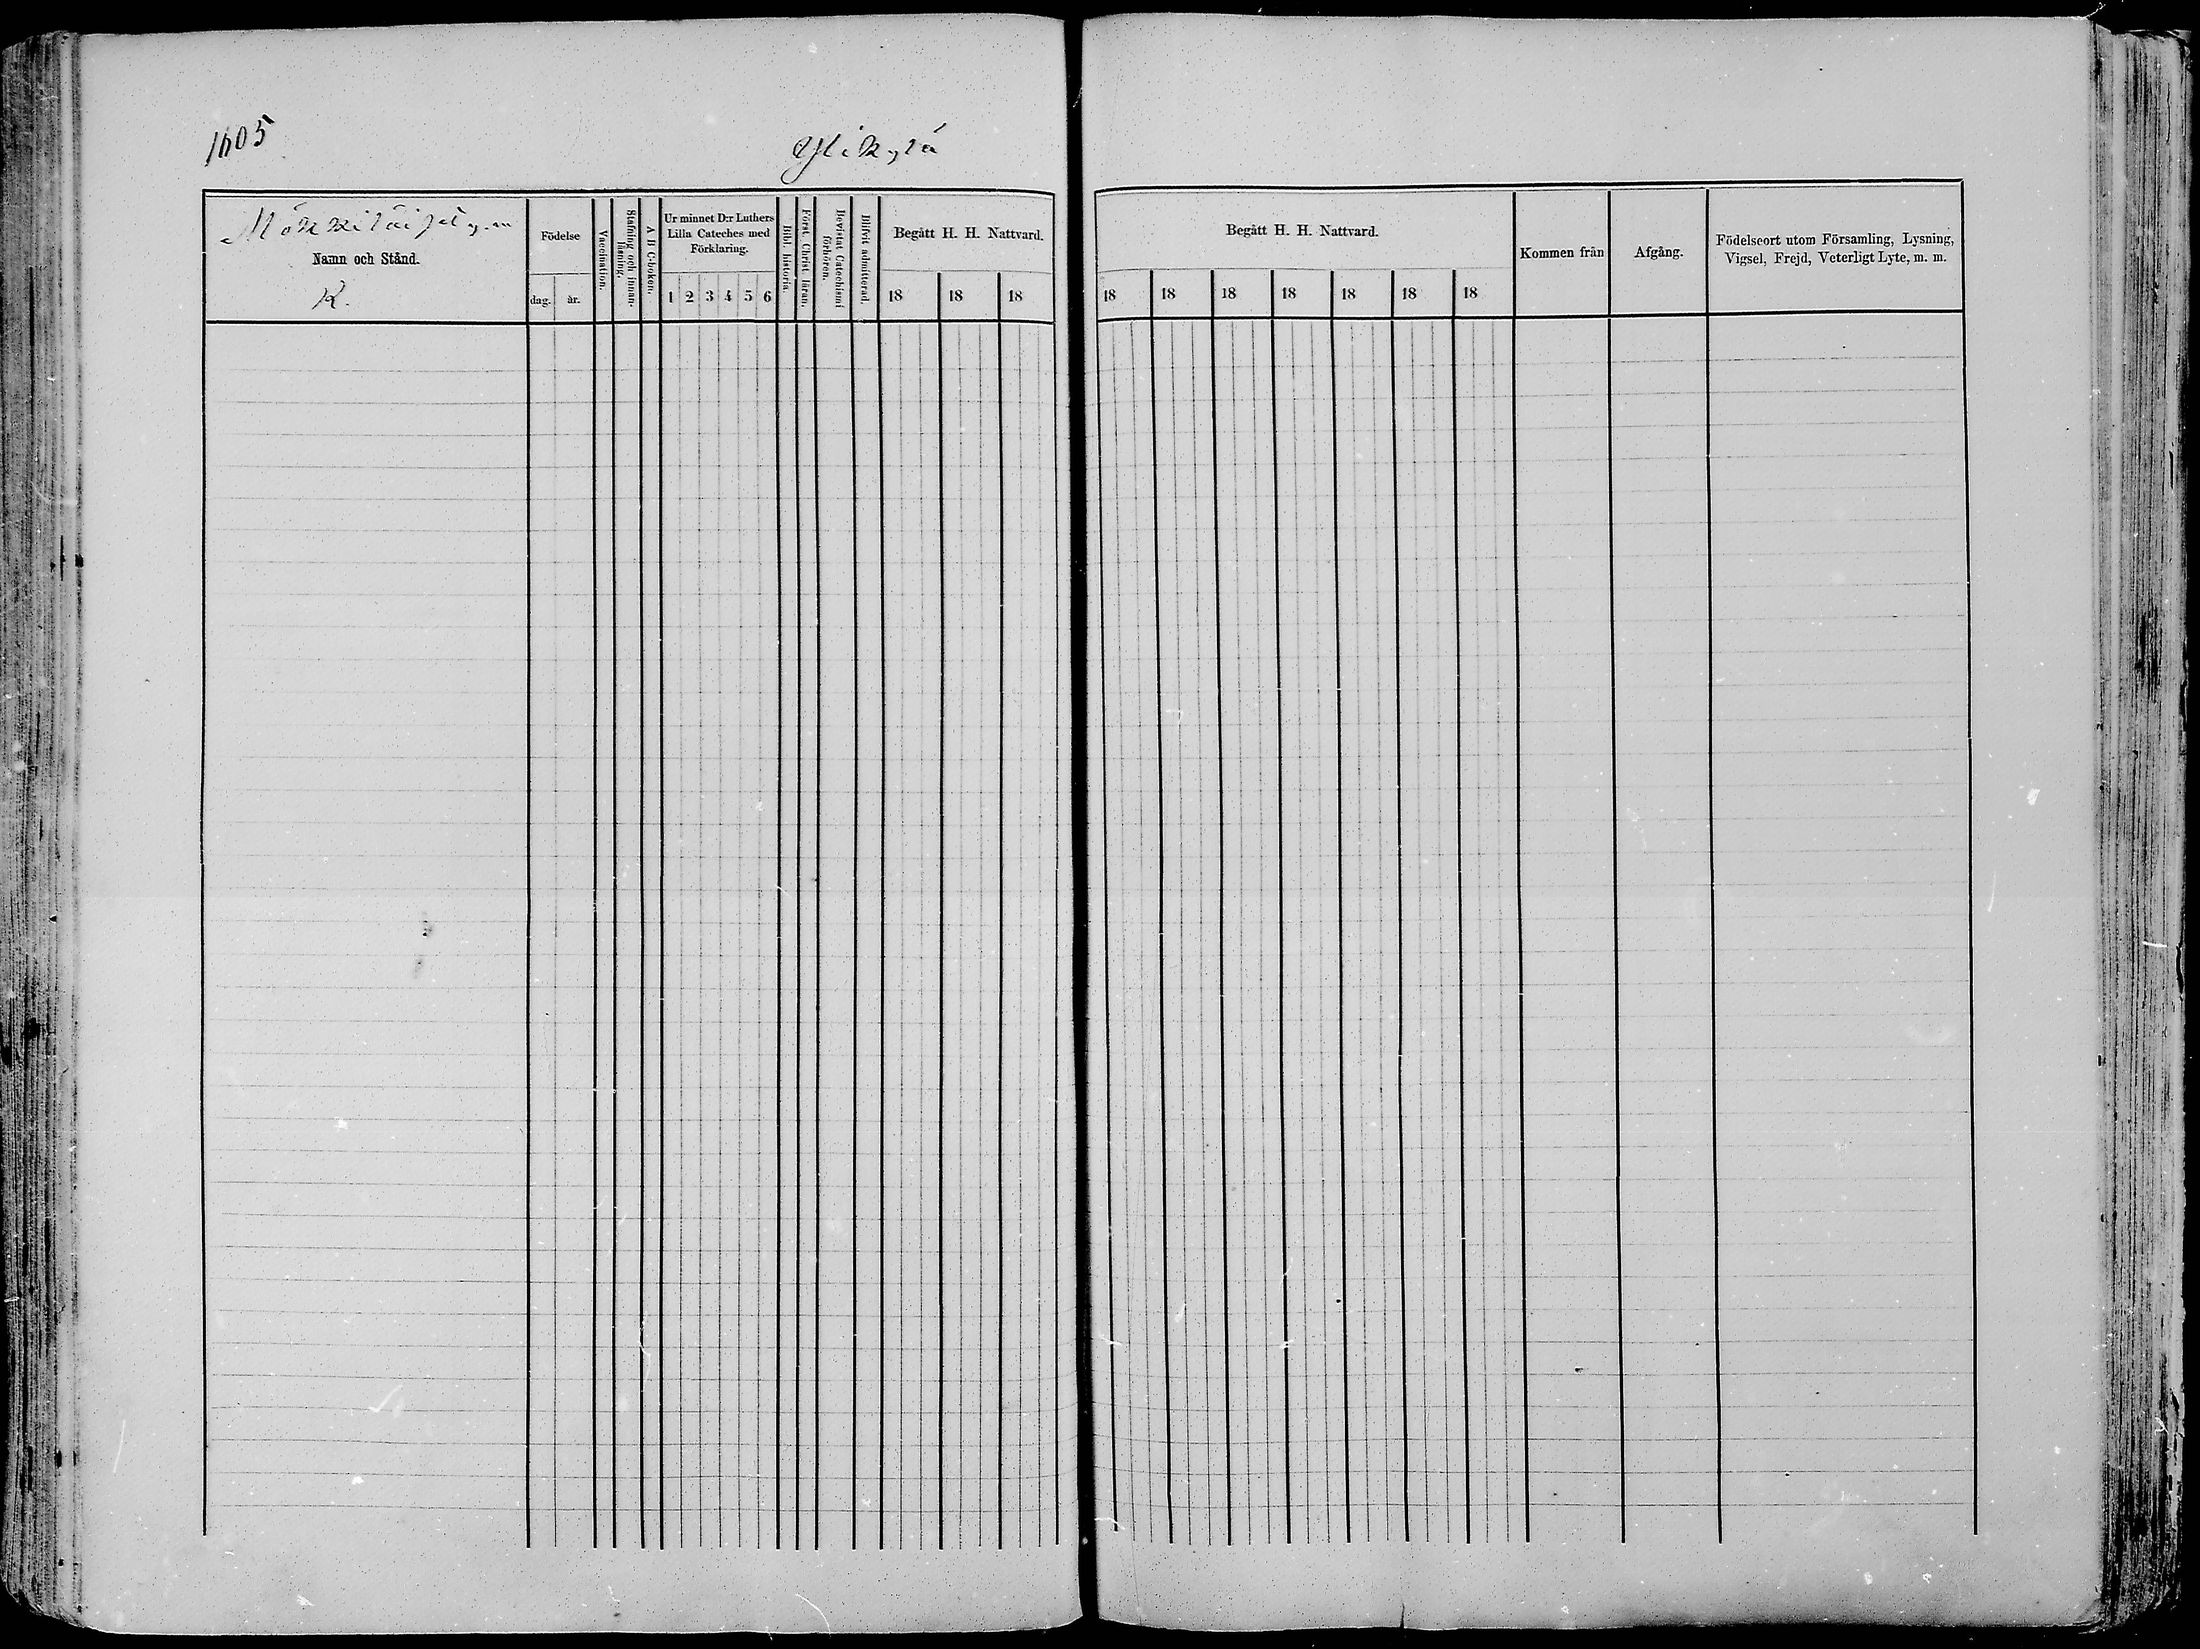 1605
Ylikylä
Namn och Stånd.
K.
Födelse
dag.
år.
Vaccination.
Stafning och innan-
läsning.
A B C-boken.
Ur minnet D:r Luthers
Lilla Cateches med
Förklaring.
1 2 3 4 5 6
Bibl. historia.
Först. Christ. läran.
Bevistat Catechismi
förhören.
Blifvit admitterad.
Begått H. H. Nattvard.
18 18 18
Begått H. H. Nattvard.
18 18 18 18 18 18 18
Kommen från
Afgång.
Födelseort utom Församling, Lysning,
Vigsel, Frejd, Veterligt Lyte, m. m.